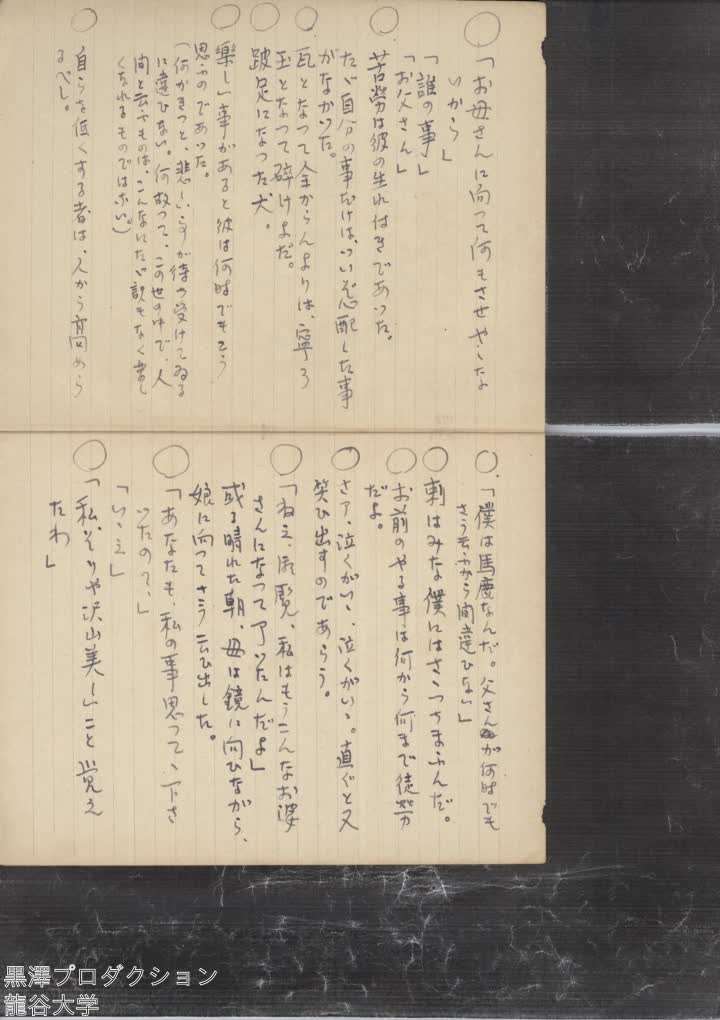 ○「お母さんに向つて何もさせやしな
いから」
「誰の事」
「お父さん」
○苦労は彼の生れつきであつた。
たゞ自分の事だけは、つひぞ心配した事
がなかつた。
○瓦となつて全からんよりは、寧ろ
玉となつて砕けよだ。
○跛足になつた犬。
○楽しい事があると彼は何時でもこう
思ふのであつた。
(何かきつと、悲しい事が待つ受けてゐる
に違ひない。何故つて、この世の中で、人
間と云ふものは、こんなにたゞ訳もなく楽し
くなれるものではない。)
○自らを低くする者は、人から高めら
るべし。
○「僕は馬鹿なんだ。父さんが何時でも
さう云ふから間違ひない」
○刺はみな僕にはさゝつちまふんだ。
○お前のやる事は何から何まで徒労
だよ。
○さア、泣くがいゝ、泣くがいゝ。直ぐと又
笑ひ出すのであらう。
○「ねえ、御覧、私はもうこんなお婆
さんになつて了つたんだよ」
或る晴れた朝、母は鏡に向ひながら、
娘に向つてさう云ひ出した。
○「あなたも、私の事思つてゝ下さ
いたの、」
「いゝえ」
○「私、そりや沢山美しいこと覚え
たわ」
黒澤プロダクション
龍谷大学